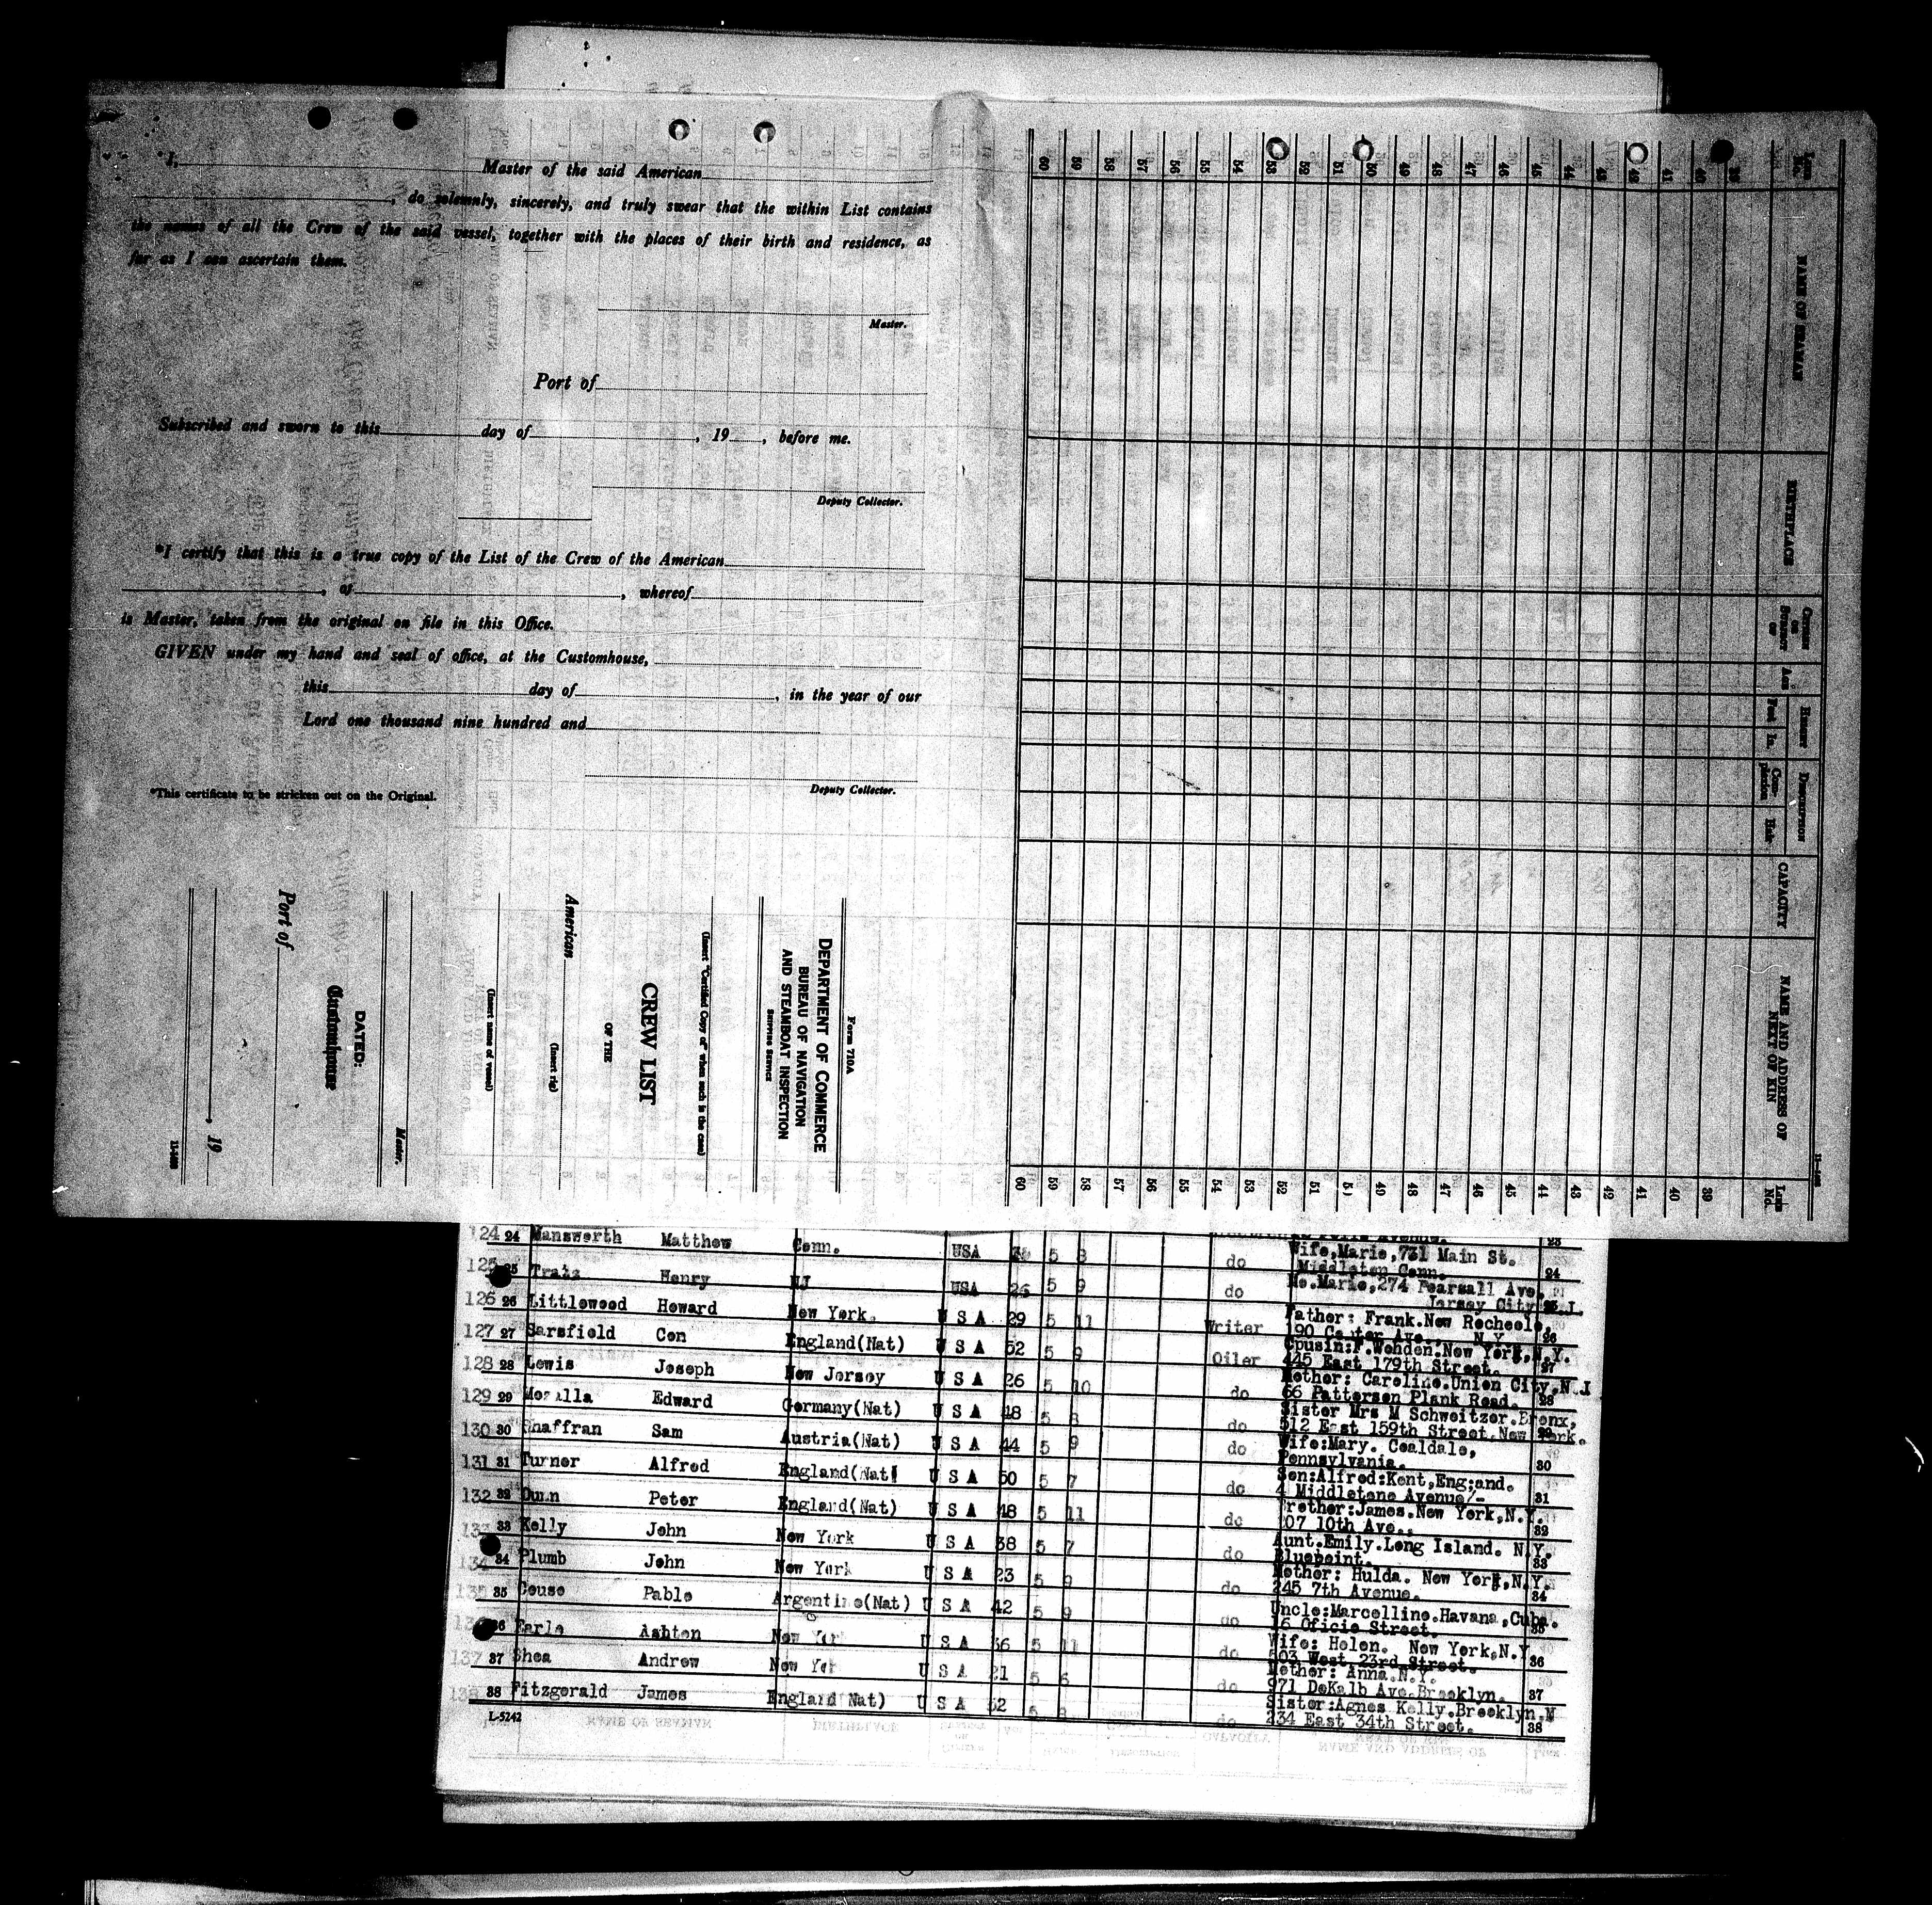 *I, Master of the said American
, do solemnly, sincerely, and truly swear that the within List contains
the names of all the Crew of the said vessel, together with the places of their birth and residence, as
far as I can ascertain them.
Master.
Port of
Subscribed and sworn to this day of , 19 , before me.
Deputy Collector.
*I certify that this is a true copy of the List of the Crew of the American
, of , whereof
is Master, taken from the original on file in this Office.
GIVEN under my hand and seal of office, at the Customhouse,
this day of , in the year of our
Lord one thousand nine hundred and
Deputy Collector.
*This certificate to be stricken out on the Original.
Form 710A
DEPARTMENT OF COMMERCE
BUREAU OF NAVIGATION
AND STEAMBOAT INSPECTION
SHIPPING SERVICE
(Insert "Certified Copy of" when such is the case)
CREW LIST
OF THE
(Insert rig)
American
(Insert name of vessel)
Master.
DATED:
Customhouse
Port of
, 19
Line No. NAME OF SEAMAN BIRTHPLACE Citizen or Subject of Age Height Feet In. Description Complexion Hair CAPACITY NAME AND ADDRESS OF NEXT OF KIN Line No.
39 39
40 40
41 41
42 42
43 43
44 44
45 45
46 46
47 47
48 48
49 49
50
51 51
52 52
53 53
54 54
55 55
56 56
57 57
58 58
59 59
60 60
23
124 24 Mansworth Matthew Conn. USA 5 8 do Wife,Marie,731 Main St.
Middleton Conn. 24
125 25 Henry NJ USA 26 5 9 do Mo.Marie,274 Pearsall Ave.
Jersey City
126 26 Littlewood Howard New York. U S A 29 5 11 Writer Father: Frank.New Rochele,
190 Center Ave., N.Y. 26
127 27 Sarsfield Con England(Nat) U S A 52 5 9 Oiler Cousin:F.Wohden.New York,N.Y.
445 East 179th Street. 27
128 28 Lewis Joseph New Jersey U S A 26 5 10 do Mother: Caroline.Union City,N.J
66 Patterson Plank Road. 28
129 29 Edward Germany(Nat) U S A 48 5 8 do Sister Mrs M Schweitzer.Bronx,
512 East 159th Street.New York.
130 30 Shaffran Sam Austria(Nat) U S A 44 5 9 do Wife:Mary. Coaldale,
Pennsylvania. 30
131 31 Turner Alfred England(Nat) U S A 50 5 7 do Son:Alfred:Kent,Eng;and.
4 Middletone Avenue/- 31
132 32 Dunn Peter England(Nat) U S A 48 5 11 do Brother:James.New York,N.Y.
207 10th Ave., 32
133 33 Kelly John New York U S A 38 5 7 do Aunt.Emily.Long Island. N.Y.
Bluepoint. 33
134 34 Plumb John New York U S A 23 5 9 do Mother: Hulda. New York,N.Y.
245 7th Avenue. 34
135 35 Couso Pablo Argentine(Nat) U S A 42 5 9 do Uncle:Marcelline.Havana,Cuba.
16 Oficio Street. 35
136 36 Earle Ashton New York U S A 36 5 11 do Wife: Helen. New York,N.Y
503 West 23rd Street. 36
137 37 Shea Andrew New Yor U S A 21 5 6 do Mother: Anna.N.Y.
971 DeKalb Ave.Brooklyn. 37
138 38 Fitzgerald James England Nat) U S A 52 5 8 do Sister:Agnes Kelly.Brooklyn,N
234 East 34th Street. 38
L-5242